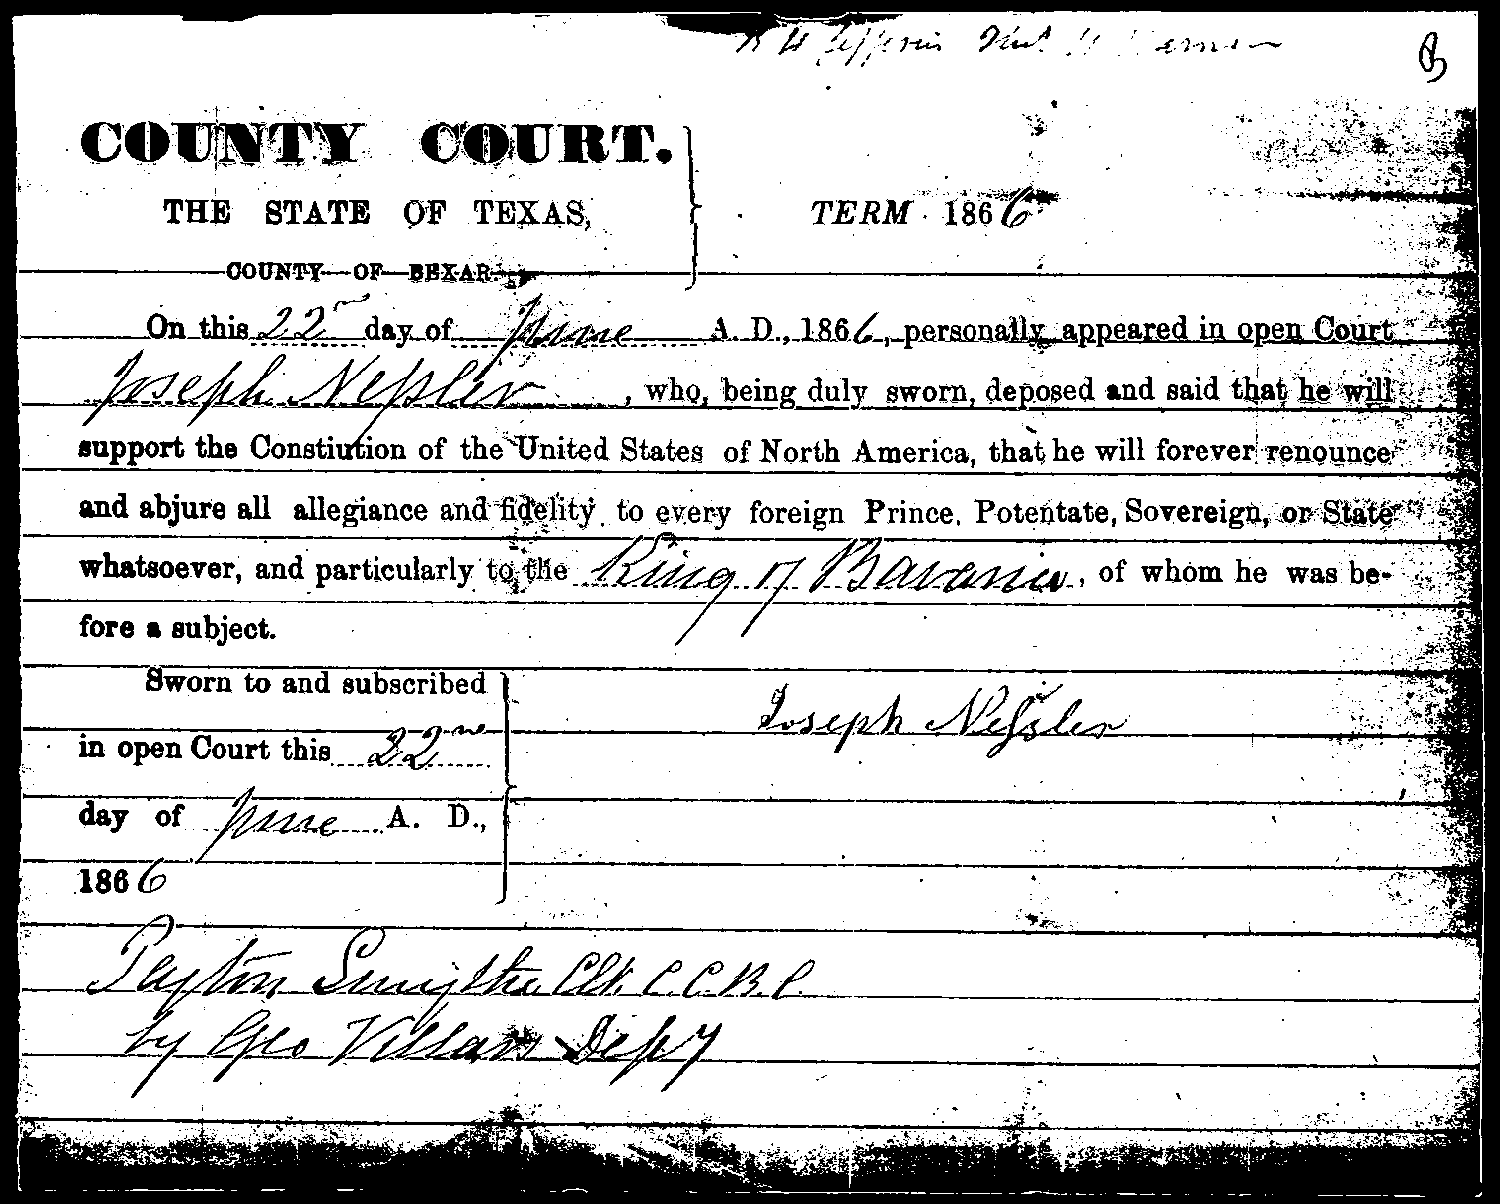 B
COUNTY COURT.
THE STATE OF TEXAS,
COUNTY OF BEXAR.
TERM 1866
On this 22nd day of June A. D., 1866, personally appeared in open Court
Joseph Neßler, who, being duly sworn, deposed and said that he will
support the Constiution of the United States of North America, that he will forever renounce
and abjure all allegiance and fidelity to every foreign Prince, Potentate, Sovereign, or State
whatsoever, and particularly to the King of Bavaria, of whom he was be-
fore a subject.
Sworn to and subscribed
in open Court this 22nd
day of June A. D.,
1866
Joseph Neßler
Peyton Smythe Clk C.C.B.C.
by Geo Villars Depy